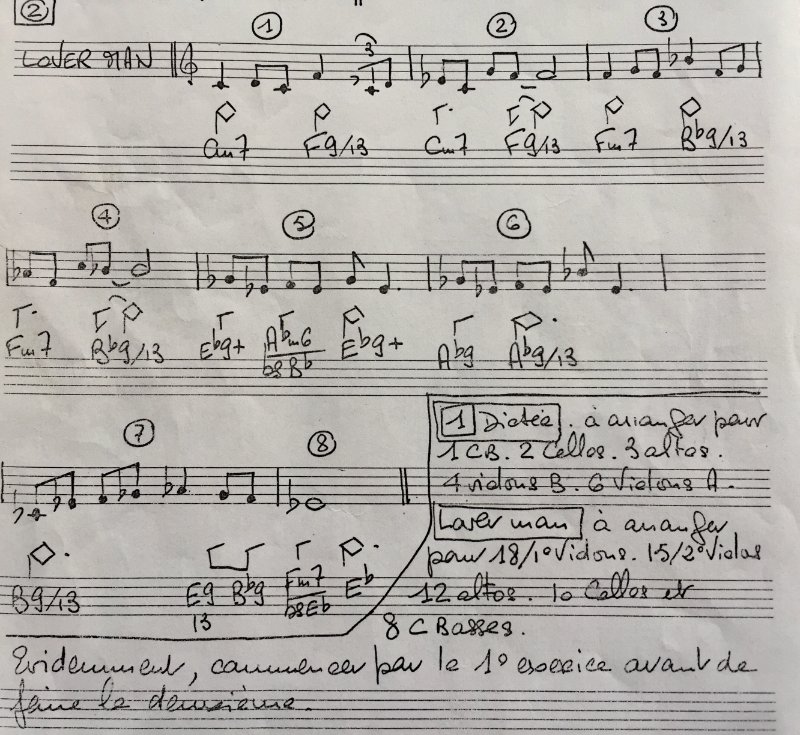 2
1 2 3
LOVER MAN
3
Cm7 F9/13 Cm7 F9/13 Fm7 Bb9/13
4 5 6
Fm7 Bb9/13 Eb9+ Abm6 Eb9+ Ab9 Ab9/13
bs Bb
7 8
1 Dictée. à arranger pour
1 CB. 2 Cellos. 3 altos.
4 violons B. 6 Violons A.
Lover man à arranger
pour 18/1º Violons. 15/2º Violos
B9/13 E9 Bb9 Fm7 Eb
13 bs Eb
12 altos. 10 Cellos et
8 C Basses.
Evidemment, commencer par le 1º exercice avant de
faire le deuxième.